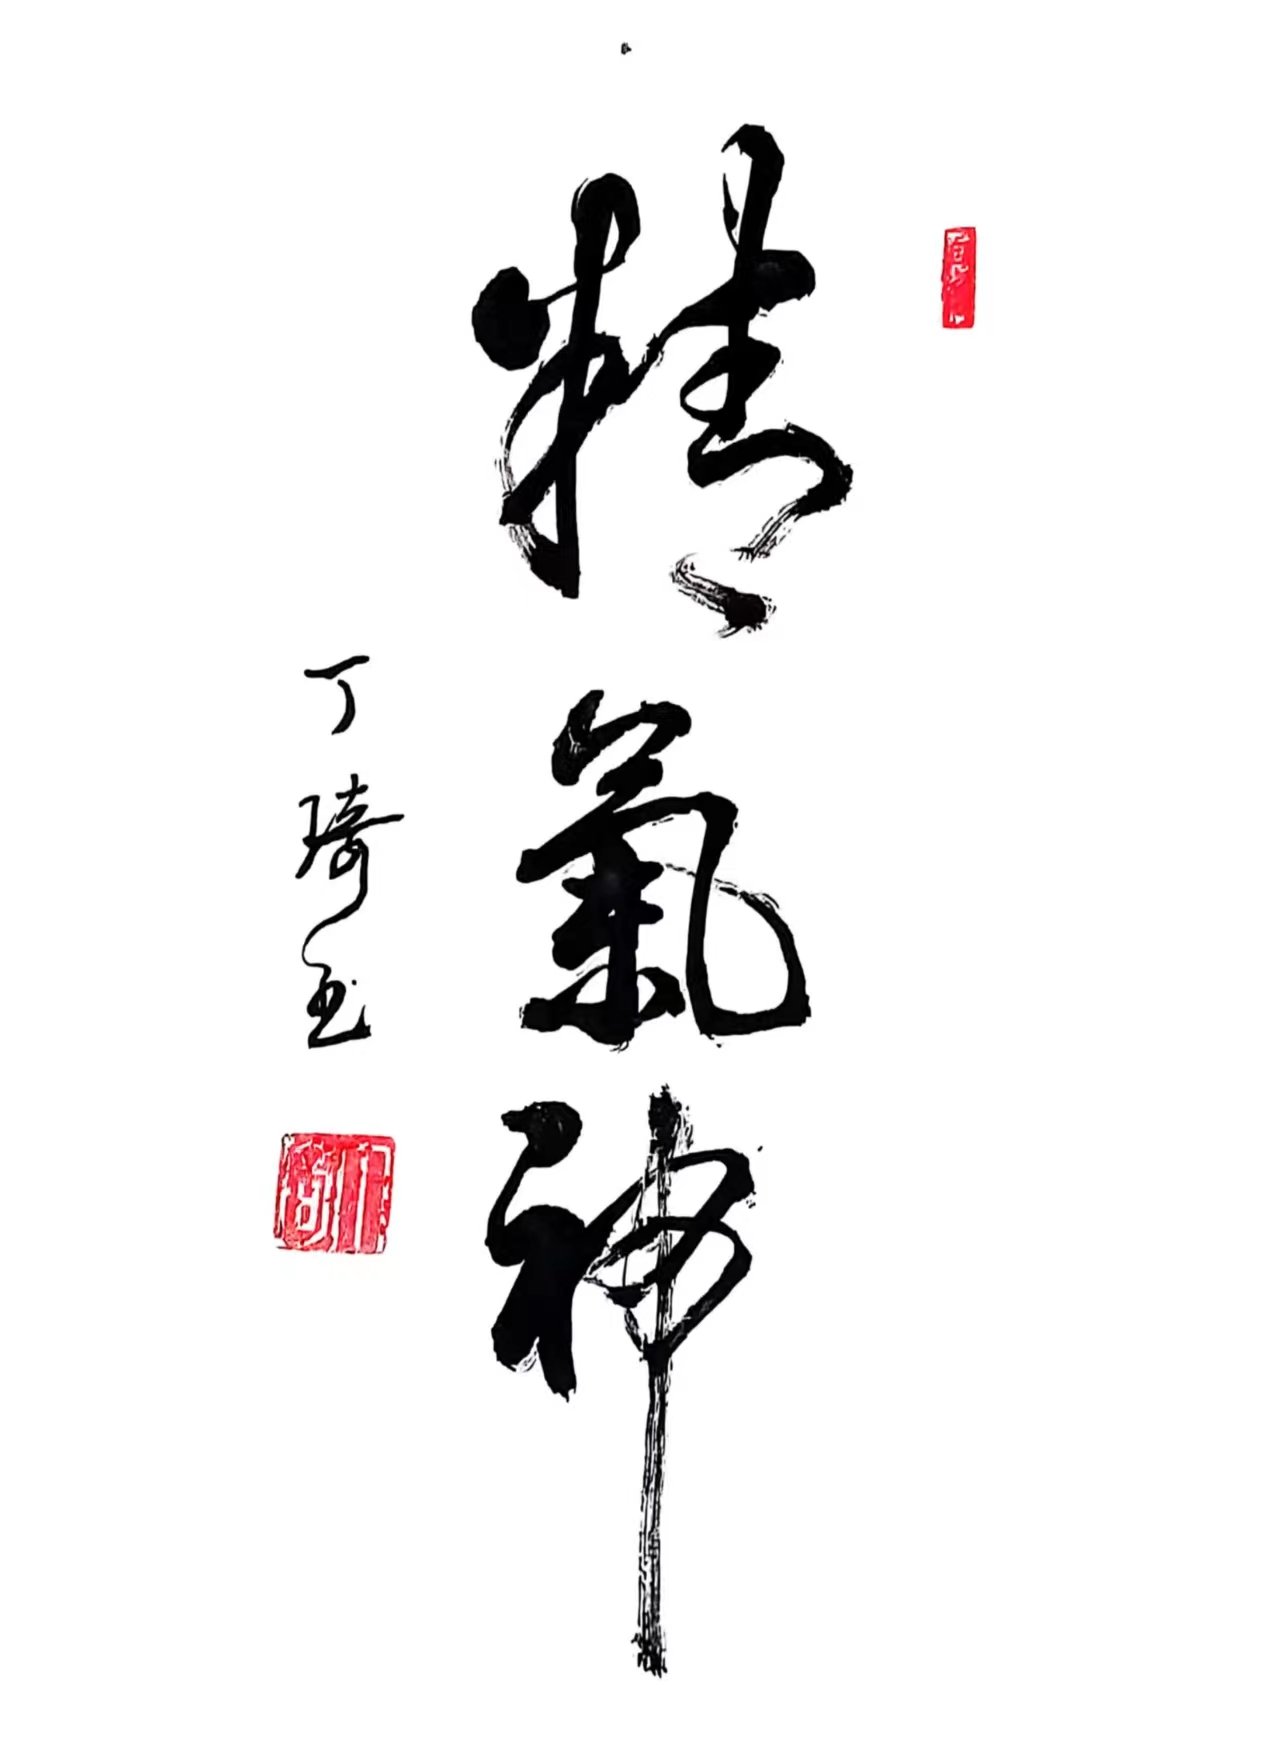 精氣神
丁琦玉